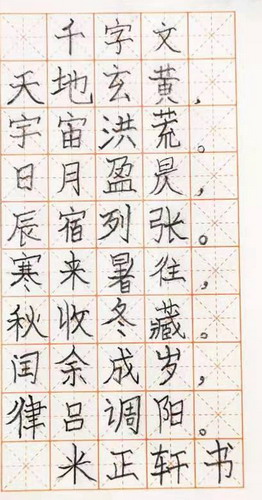 千字文
天地玄黄，
宇宙洪荒。
日月盈昃，
辰宿列张。
寒来暑往，
秋收冬藏。
闰余成岁，
律吕调阳。
米正轩书